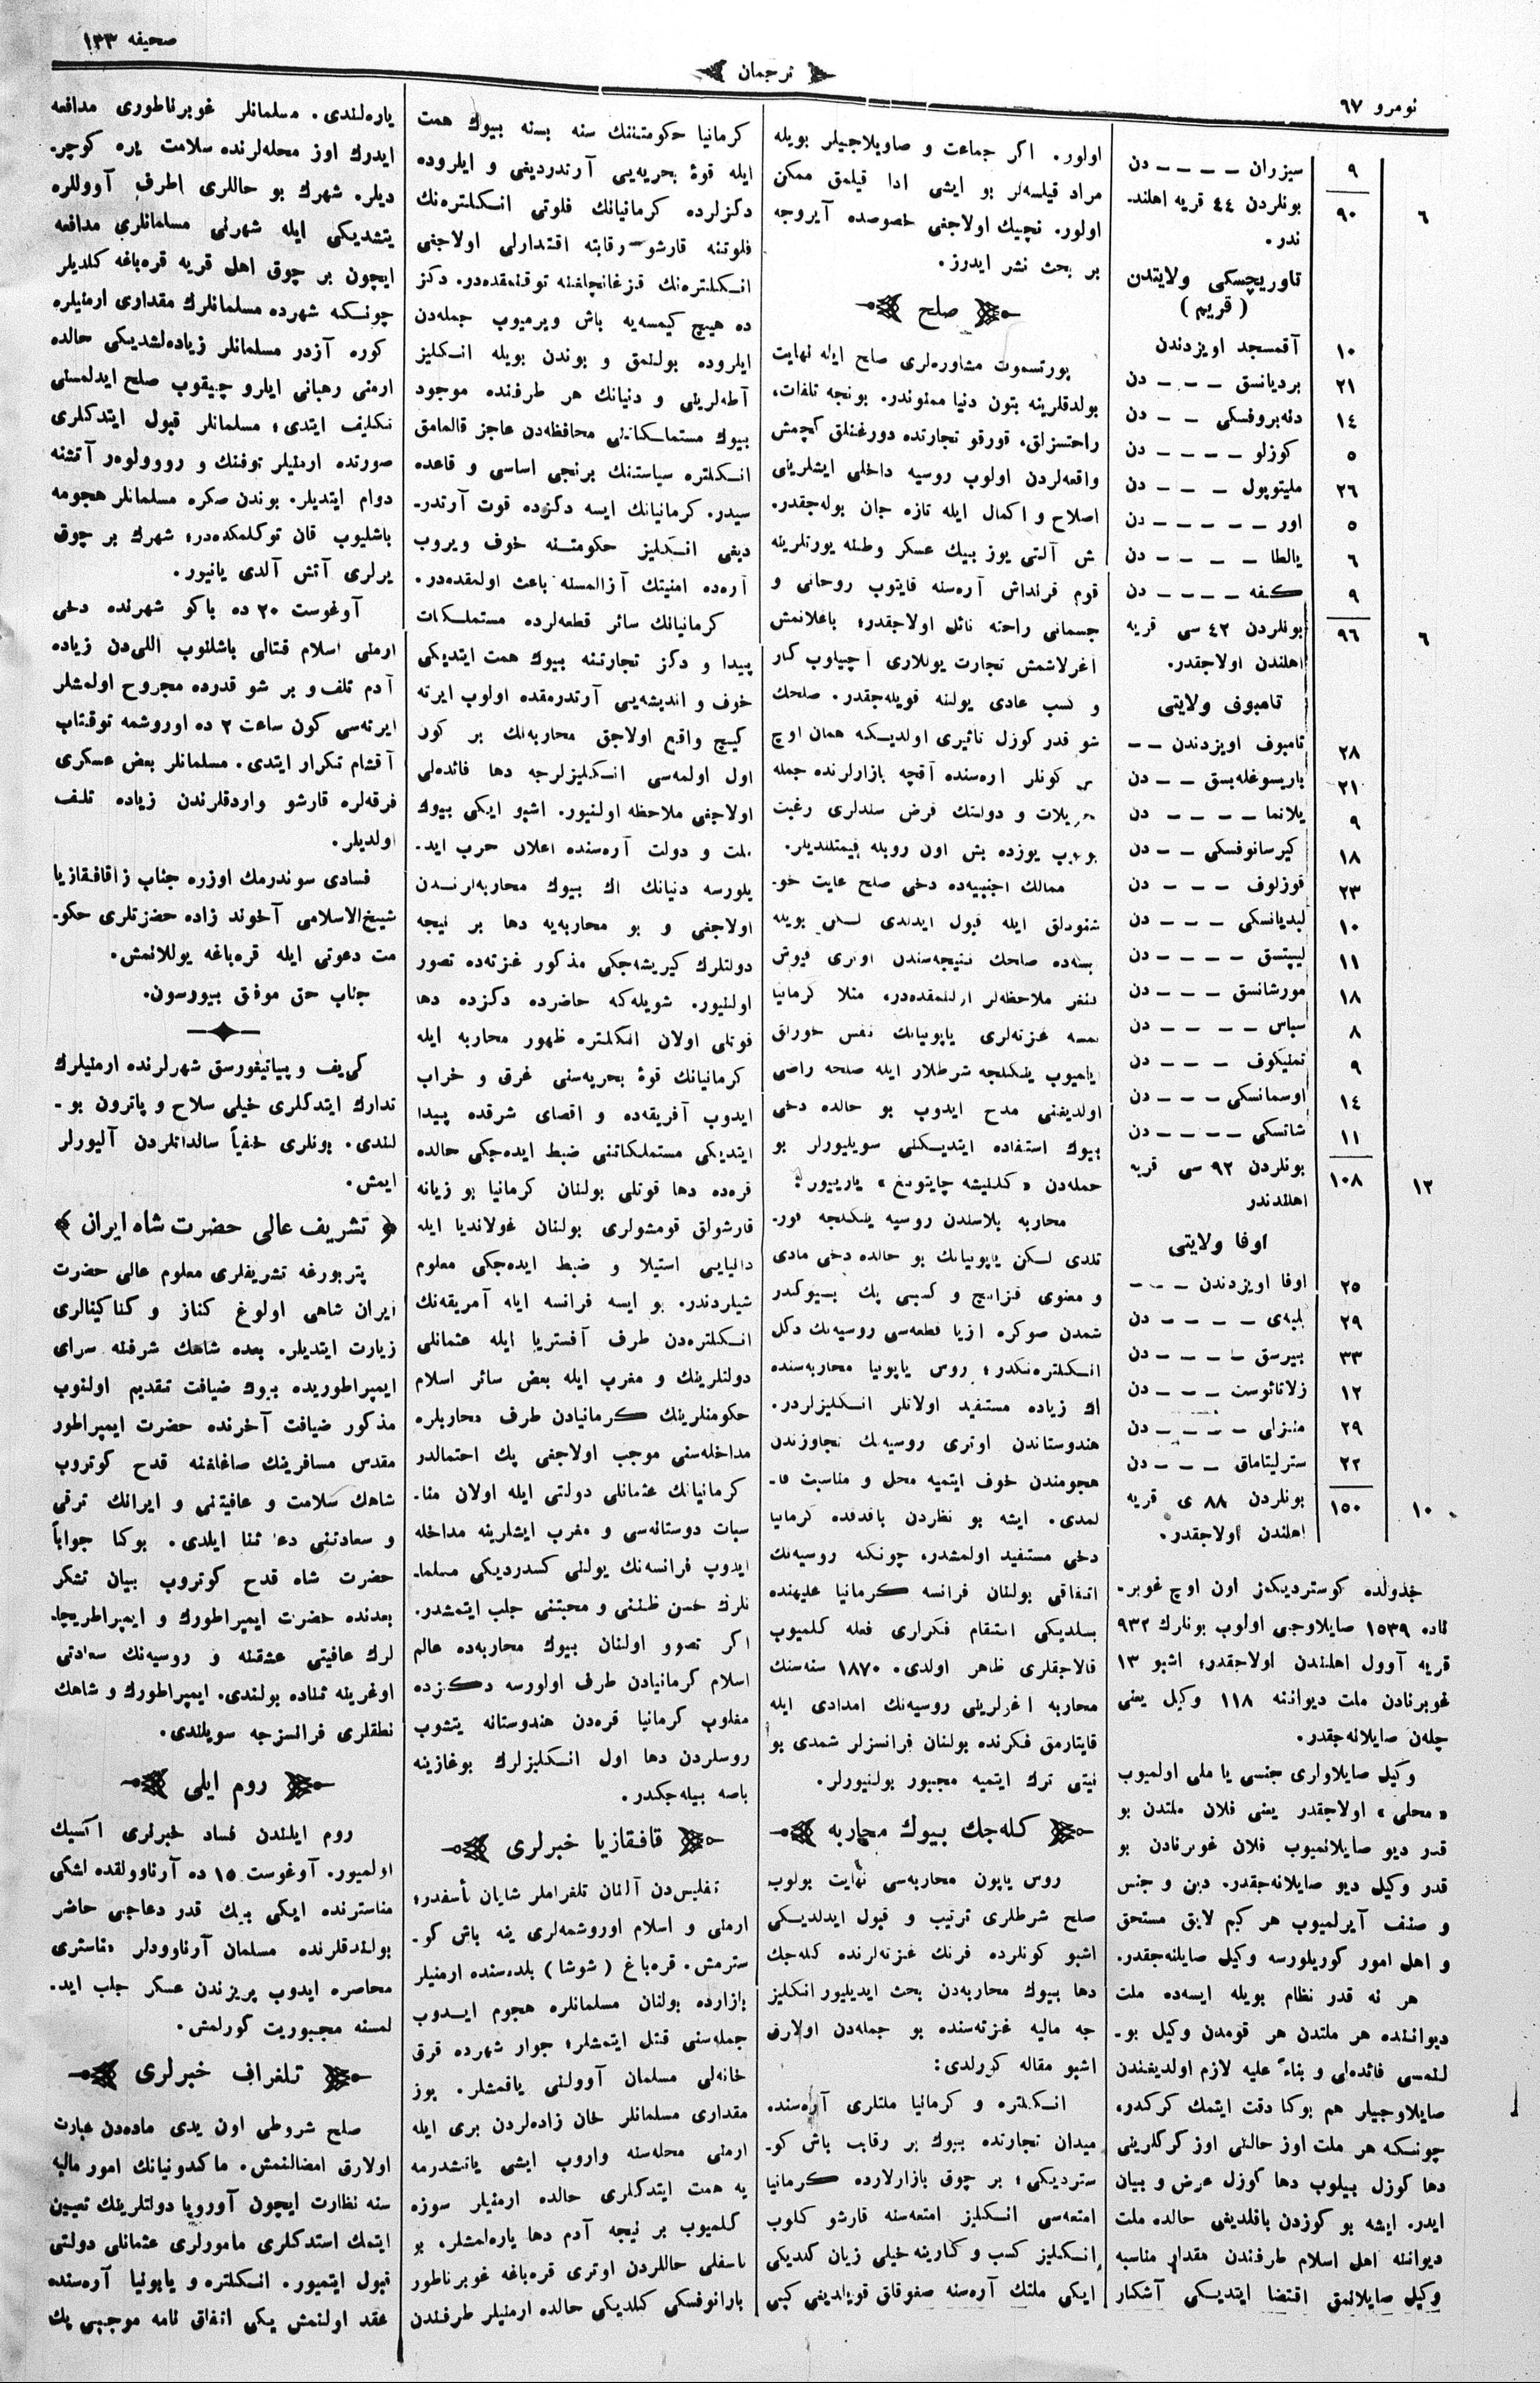 نومرو ٦٧
ترجمان
صحیفه ١٣٣
سیزران — — — — دن ٩
بونلردن ٤٤ قریه اهلند- ٩٠ ٦
ندر.
تاوریچسکی ولایتدن
( قریم )
آقمسجد اویزدندن ١٠
بردیانسق — — — دن ٢١
دنه‌پروفسکی — — دن ١٤
کوزلو — — — — دن ٥
ملیتوپول — — — دن ٢٦
اور — — — — — دن ٥
یالطا — — — — دن ٦
کفه — — — — دن ٩
بونلردن ٤٢ سی قریه ٩٦ ٦
اهلندن اولاجقدر.
تامبوف ولایتی
تامبوف اویزدندن — — ٢٨
باریسوغله‌بسق — — دن ٢١
یلاتما — — — — دن ٩
کیرسانوفسکی — — دن ١٨
قوزلوف — — — دن ٢٣
لبدیانسکی — — — دن ١٠
لیپتسق — — — — دن ١١
مورشانسق — — — دن ١٨
سپاس — — — — دن ٨
تمنیکوف — — — دن ٩
اوسمانسکی — — — دن ١٤
شاتسکی — — — — دن ١١
بونلردن ٩٢ سی قریه ١٠٨ ١٢
اهلندندر
اوفا ولایتی
اوفا اویزدندن — — — ٢٥
بلبه‌ی — — — — دن ٢٩
بیرسق — — — — دن ٣٣
زلاتائوست — — — دن ١٢
منزلی — — — — دن ٢٩
سترلیتاماق — — — دن ٢٢
بونلردن ٨٨ ی قریه ١٥٠ ١٠
اهلندن اولاجقدر.
جدولده کوستردیکمز اون اوچ غوبر-
ناده ١٥٣٩ صایلاوجی اولوب بونلرك ٩٣٢
قریه آوول اهلندن اولاجقدر؛ اشبو ١٣
غوبرنادن ملت دیواننه ١١٨ وکیل یعنی
چله‌ن صایلانه‌جقدر.
وکیل صایلاولری جنسی یا ملی اولمیوب
« محلی » اولاجقدر یعنی فلان ملتدن بو
قدر دیو صایلانمیوب فلان غوبرنادن بو
قدر وکیل دیو صایلانه‌جقدر. دین و جنس
و صنف آیرلمیوب هر کیم لایق مستحق
و اهل امور کوریلورسه وکیل صایلنه‌جقدر.
هر نه قدر نظام بویله ایسه‌ده ملت
دیواننده هر ملتدن هر قومدن وکیل بو-
لنمسی فائده‌لی و بناءً علیه لازم اولدیغندن
صایلاوجیلر هم بوکا دقت ایتمك کرکدر،
چونکه هر ملت اوز حالنی اوز کرکلرینی
دها کوزل بیلوب دها کوزل عرض و بیان
ایدر. ایشه بو کوزدن باقلدیغی حالده ملت
دیواننه اهل اسلام طرفندن مقدار مناسبه
وکیل صایلانمق اقتضا ایتدیکی آشکار
اولور. اکر جماعت و صاویلاجیلر بویله
مراد قیلسه‌لر بو ایشی ادا قیلمق ممکن
اولور. نچیك اولاجغی خصوصده آیروجه
بر بحث نشر ایدرز.
صلح
پورتسموت مشاوره‌لری صلح ایله نهایت
بولدقلرینه بتون دنیا ممنوندر. بونجه تلفات،
راحتسزلق، قورقو تجارتده دورغنلق کچمش
واقعه‌لردن اولوب روسیه داخلی ایشلرینی
اصلاح و اکمال ایله تازه جان بوله‌جقدر.
ش آلتی یوز بیك عسکر وطنه یورتلرینه
قوم قرنداش آره‌سنه قایتوب روحانی و
جسمانی راحته نائل اولاجقدر؛ باغلانمش
آغرلاشمش تجارت یوللاری آچیلوب کار
و کسب عادی یولنه قویله‌جقدر. صلحك
شو قدر کوزل تاثیری اولدیکه همان اوچ
کونلر آره‌سنده آقچه بازارلرنده جمله
و دولتك قرض سندلری رغبت
یوزده بش اون روبله قیمتلندیلر.
ممالك اجنبیه‌ده دخی صلح غایت خو-
شنودلق ایله قبول ایدلدی لکن بویله
بسه‌ده صلحك نتیجه‌سندن اوتری
ملاحظه‌لر اولنمقده‌در، مثلا کرمانیا
غزته‌لری یاپونیانك نفس
شرطلار ایله صلحه راضی
اولدیغنی مدح ایدوب بو حالده دخی
بیوك استفاده ایتدیکنی سویلیورلر بو
جمله‌دن « یازییور:
محاربه بلاسندن روسیه قور-
تلدی لکن یاپونیانك بو حالده دخی مادی
و معنوی قزانچ و کسبی پك بیوکدر
شمدن صوکره آزیا قطعه‌سی روسیه‌نك دکل
انکلتره‌نکدر؛ روس یاپونیا محاربه‌سنده
اك زیاده مستفید اولانلر انکلیزلردر.
هندوستاندن اوتری روسیه‌نك تجاوزندن
هجومندن خوف ایتمیه محل و مناسبت قا-
لمدی. ایشه بو نظردن باقدقده کرمانیا
دخی مستفید اولمشدر، چونکه روسیه‌نك
اتفاقی بولنان فرانسه کرمانیا علیهنده
بسلدیکی انتقام فکرلری فعله کلمیوب
قالاجقلری ظاهر اولدی. ١٨٧٠ سنه‌سنك
محاربه آغرلرینی روسیه‌نك امدادی ایله
قایتارمق فکرنده بولنان فرانسزلر شمدی بو
نیتی ترك ایتمیه مجبور بولنیورلر.
کله‌جك بیوك محاربه
روس یاپون محاربه‌سی نهایت بولوب
صلح شرطلری ترتیب و قبول ایدلدیکی
اشبو کونلرده فرنك غزته‌لرنده کله‌جك
دها بیوك محاربه‌دن بحث ایدیلیور انکلیز
جه مالیه غزته‌سنده بو جمله‌دن اولارق
اشبو مقاله کورلدی:
انکلتره و کرمانیا ملتلری آره‌سنده
میدان تجارتده بیوك بر رقابت باش کو-
ستردیکی؛ بر چوق بازارلارده کرمانیا
امتعه‌سی انکلیز امتعه‌سنه قارشو کلوب
انکلیز کسب و کارینه خیلی زیان کلدیکی
ایکی ملتك آره‌سنه صغوقلق قویلدیغی کبی
کرمانیا حکومتننك سنه بسنه بیوك همت
ایله قوۀ بحریه‌یی آرتدردیغی و ایلروده
دکزلرده کرمانیانك فلوتی انکلتره‌نك
فلوتنه قارشو رقابته اقتدارلی اولاجغی
انکلتره‌نك قزغانچلغنه توقنمقده‌در. دکز
ده هیچ کیمسه‌یه باش ویرمیوب جمله‌دن
ایلروده بولنمق و بوندن بویله انکلیز
آطه‌لرینی و دنیانك هر طرفنده موجود
بیوك مستملکاتنی محافظه‌دن عاجز قالمامق
انکلتره سیاستنك برنجی اساسی و قاعده
سیدر. کرمانیانك ایسه دکزده قوت آرتدر-
دیغی انکلیز حکومتنه خوف ویروب
آره‌ده امنیتك آزالمسنه باعث اولمقده‌در.
کرمانیانك سائر قطعه‌لرده مستملکات
پیدا و دکز تجارتنه بیوك همت ایتدیکی
خوف و اندیشه‌یی آرتدرمقده اولوب ایرته
کیچ واقع اولاجق محاربه‌نك بر کون
اول اولمه‌سی انکلیزلرجه دها فائده‌لی
اولاجغی ملاحظه اولنیور. اشبو ایکی بیوك
ملت و دولت آره‌سنده اعلان حرب اید-
یلورسه دنیانك اك بیوك محاربه‌لرندن
اولاجغی و بو محاربه‌یه دها بر نیجه
دولتلرك کیریشه‌جکی مذکور غزته‌ده تصور
اولنیور. شویله‌که حاضرده دکزده دها
قوتلی اولان انکلتره ظهور محاربه ایله
کرمانیانك قوۀ بحریه‌سنی غرق و خراب
ایدوب آفریقه‌ده و اقصای شرقده پیدا
ایتدیکی مستملکاتنی ضبط ایده‌جکی حالده
قره‌ده دها قوتلی بولنان کرمانیا بو زیانه
قارشولق قومشولری بولنان غولاندیا ایله
دانیایی استیلا و ضبط ایده‌جکی معلوم
شیلردندر. بو ایسه فرانسه ایله آمریقه‌نك
انکلتره‌دن طرف آفستریا ایله عثمانلی
دولتلرینك و مغرب ایله بعض سائر اسلام
حکومتلرینك کرمانیادن طرف محاربلره
مداخله‌سنی موجب اولاجغی پك احتمالدر
کرمانیانك عثمانلی دولتی ایله اولان منا-
سبات دوستانه‌سی و مغرب ایشلرینه مداخله
ایدوب فرانسه‌نك یولنی کسدردیکی مسلما-
نلرك حسن ظننی و محبتنی جلب ایتمشدر.
اکر تصور اولنان بیوك محاربه‌ده عالم
اسلام کرمانیادن طرف اولورسه دکزده
مغلوب کرمانیا قره‌دن هندوستانه یتشوب
روسلردن دها اول انکلیزلرك بوغازینه
باصه بیله‌جکدر.
قافقازیا خبرلری
تفلیس‌دن آلنان تلغرافلر شایان تأسفدر؛
ارمنی و اسلام اوروشمه‌لری ینه باش کو-
سترمش. قره‌باغ ( شوشا ) بلده‌سنده ارمنیلر
بازارده بولنان مسلمانلره هجوم ایدوب
جمله‌سنی قتل ایتمشلر؛ جوار شهرده قرق
خانه‌لی مسلمان آوولنی یاقمشلر. یوز
مقداری مسلمانلر خان زاده‌لردن بری ایله
ارمنی محله‌سنه واروب ایشی یاتشدرمه
یه همت ایتدکلری حالده ارمنیلر سوزه
کلمیوب بر نیجه آدم دها یاره‌لمشلر. بو
تاسفلی حاللردن اوتری قره‌باغه غوبرناطور
بارانوفسکی کلدیکی حالده ارمنیلر طرفندن
یاره‌لندی. مسلمانلر غوبرناطوری مدافعه
ایدرك اوز محله‌لرنده سلامت یره کوچر-
دیلر. شهرك بو حاللری اطرف آووللره
یتشدیکی ایله شهرنی مسلمانلری مدافعه
ایچون بر چوق اهل قریه قره‌باغه کلدیلر
چونکه شهرده مسلمانلرك مقداری ارمنیلره
کوره آزدر مسلمانلر زیاده‌لشدیکی حالده
ارمنی رهبانی ایلرو چیقوب صلح ایدلمسنی
تکلیف ایتدی؛ مسلمانلر قبول ایتدکلری
صورتده ارمنیلر توفنك و رووولوەر آتشنه
دوام ایتدیلر. بوندن صکره مسلمانلر هجومه
باشلیوب قان توکلمکده‌در؛ شهرك بر چوق
یرلری آتش آلدی یانیور.
آوغوست ٢٠ ده باکو شهرنده دخی
ارمنی اسلام قتالی باشلنوب اللی‌دن زیاده
آدم تلف و بر شو قدرده مجروح اولمشلر
ایرته‌سی کون ساعت ٢ ده اوروشمه توقتاب
آقشام تکرار ایتدی. مسلمانلر بعض عسکری
فرقه‌لره قارشو واردقلرندن زیاده تلف
اولدیلر.
فسادی سوندرمك اوزره جناب زاقافقازیا
شیخ‌الاسلامی آخوند زاده حضرتلری حکو-
مت دعوتی ایله قره‌باغه یوللانمش.
جناب حق موفق بیورسون.
کی‌یف و پیاتیغورسق شهرلرنده ارمنیلرك
تدارك ایتدکلری خیلی سلاح و پاترون بو-
لندی. بونلری خفیاً سالداتلردن آلیورلر
ایمش.
﴿ تشریف عالی حضرت شاه ایران ﴾
پتربورغه تشریفلری معلوم عالی حضرت
ایران شاهی اولوغ کناز و کناکینالری
زیارت ایتدیلر. بعده شاهك شرفنه سرای
ایمپراطوریده بیوك ضیافت تقدیم اولنوب
مذکور ضیافت آخرنده حضرت ایمپراطور
مقدس مسافرینك صاغلغنه قدح کوتروب
شاهك سلامت و عافیتنی و ایرانك ترقی
و سعادتنی دعا ثنا ایلدی. بوکا جواباً
حضرت شاه قدح کوتروب بیان تشکر
بعدنده حضرت ایمپراطورك و ایمپراطریچا-
لرك عافیتی عشقنه و روسیه‌نك سعادتی
اوغرینه ثناده بولندی. ایمپراطورك و شاهك
نطقلری فرانسزجه سویلندی.
روم ایلی
روم ایلندن فساد خبرلری اکسیك
اولمیور. آوغوست ١٥ ده آرناوولقده اشکی
مناسترنده ایکی بیك قدر دعاجی حاضر
بولندقلرنده مسلمان آرناوودلر مناستری
محاصره ایدوب پریزندن عسکر جلب اید-
لمسنه مجبوریت کورلمش.
تلغراف خبرلری
صلح شروطی اون یدی ماده‌دن عبارت
اولارق امضالنمش. ماکدونیانك امور مالیه
سنه نظارت ایچون آوروپا دولتلرینك تعیین
ایتمك استدکلری مامورلری عثمانلی دولتی
قبول ایتمیور. انکلتره و یاپونیا آره‌سنده
عقد اولنمش یکی اتفاق نامه موجبی پك